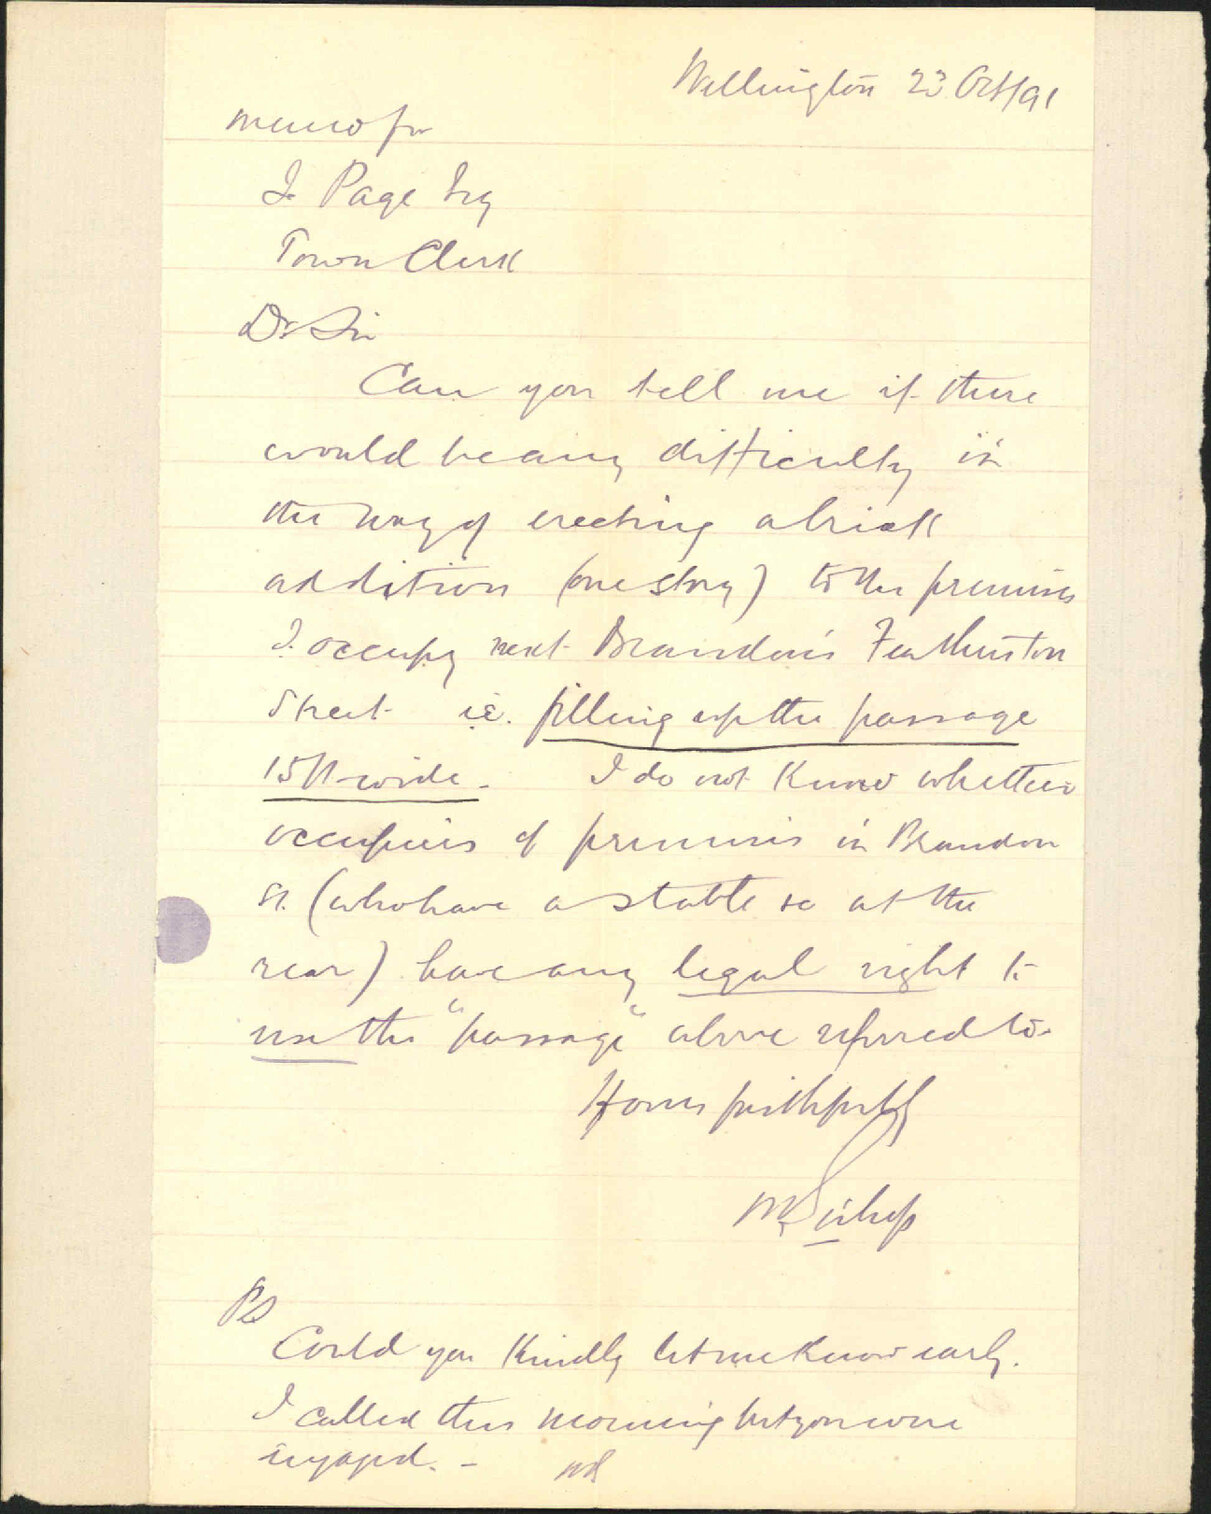 Wellington 23 Oct/91
Memo for
J. Page Esq
Town Clerk
Dr Sir
Can you tell me if there
would be any difficulty in
the way of erecting a brick
addition (one story) to the premises
I occupy next Brandon's Featherston
Street i.e. filling up the passage
15 ft wide. I do not know whether
occupiers of premises in Brandon
St. (who have a stable &c at the
rear) have any legal right to
use the "passage" above referred to.
Yours faithfully
Ps
Could you kindly let me know early.
I called this morning but you were
engaged. -